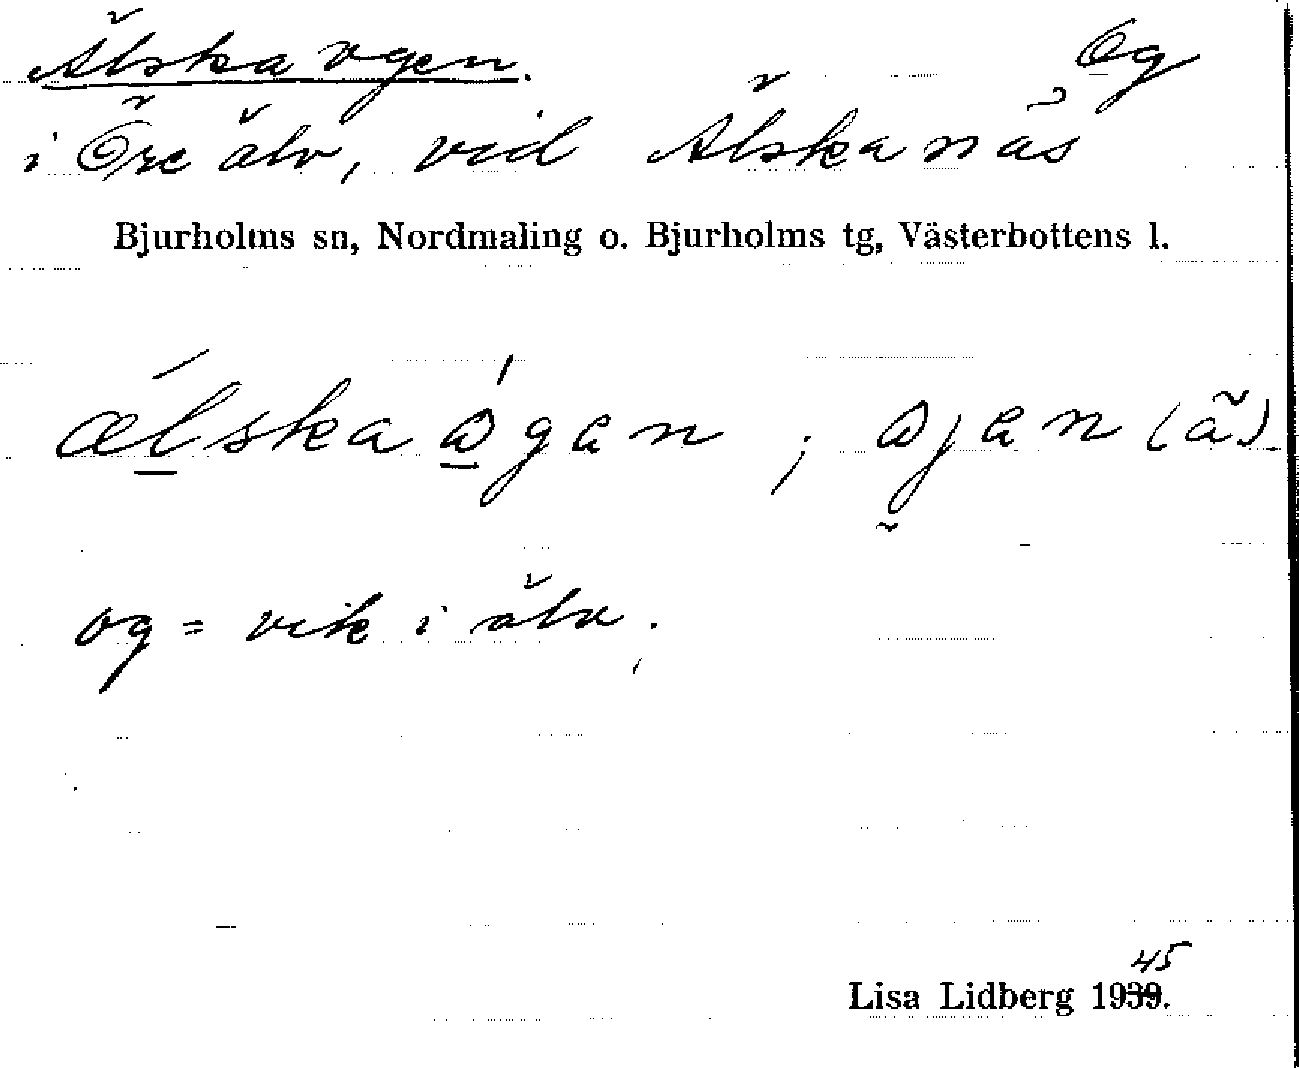 Älskaogen. Og
i Öre älv, vid Älskanäs
Bjurholms sn, Nordmaling o. Bjurholms tg, Västerbottens l.
ælskaågan ; åjan (ã).
og = vik i älv.
45
Lisa Lidberg 1939.